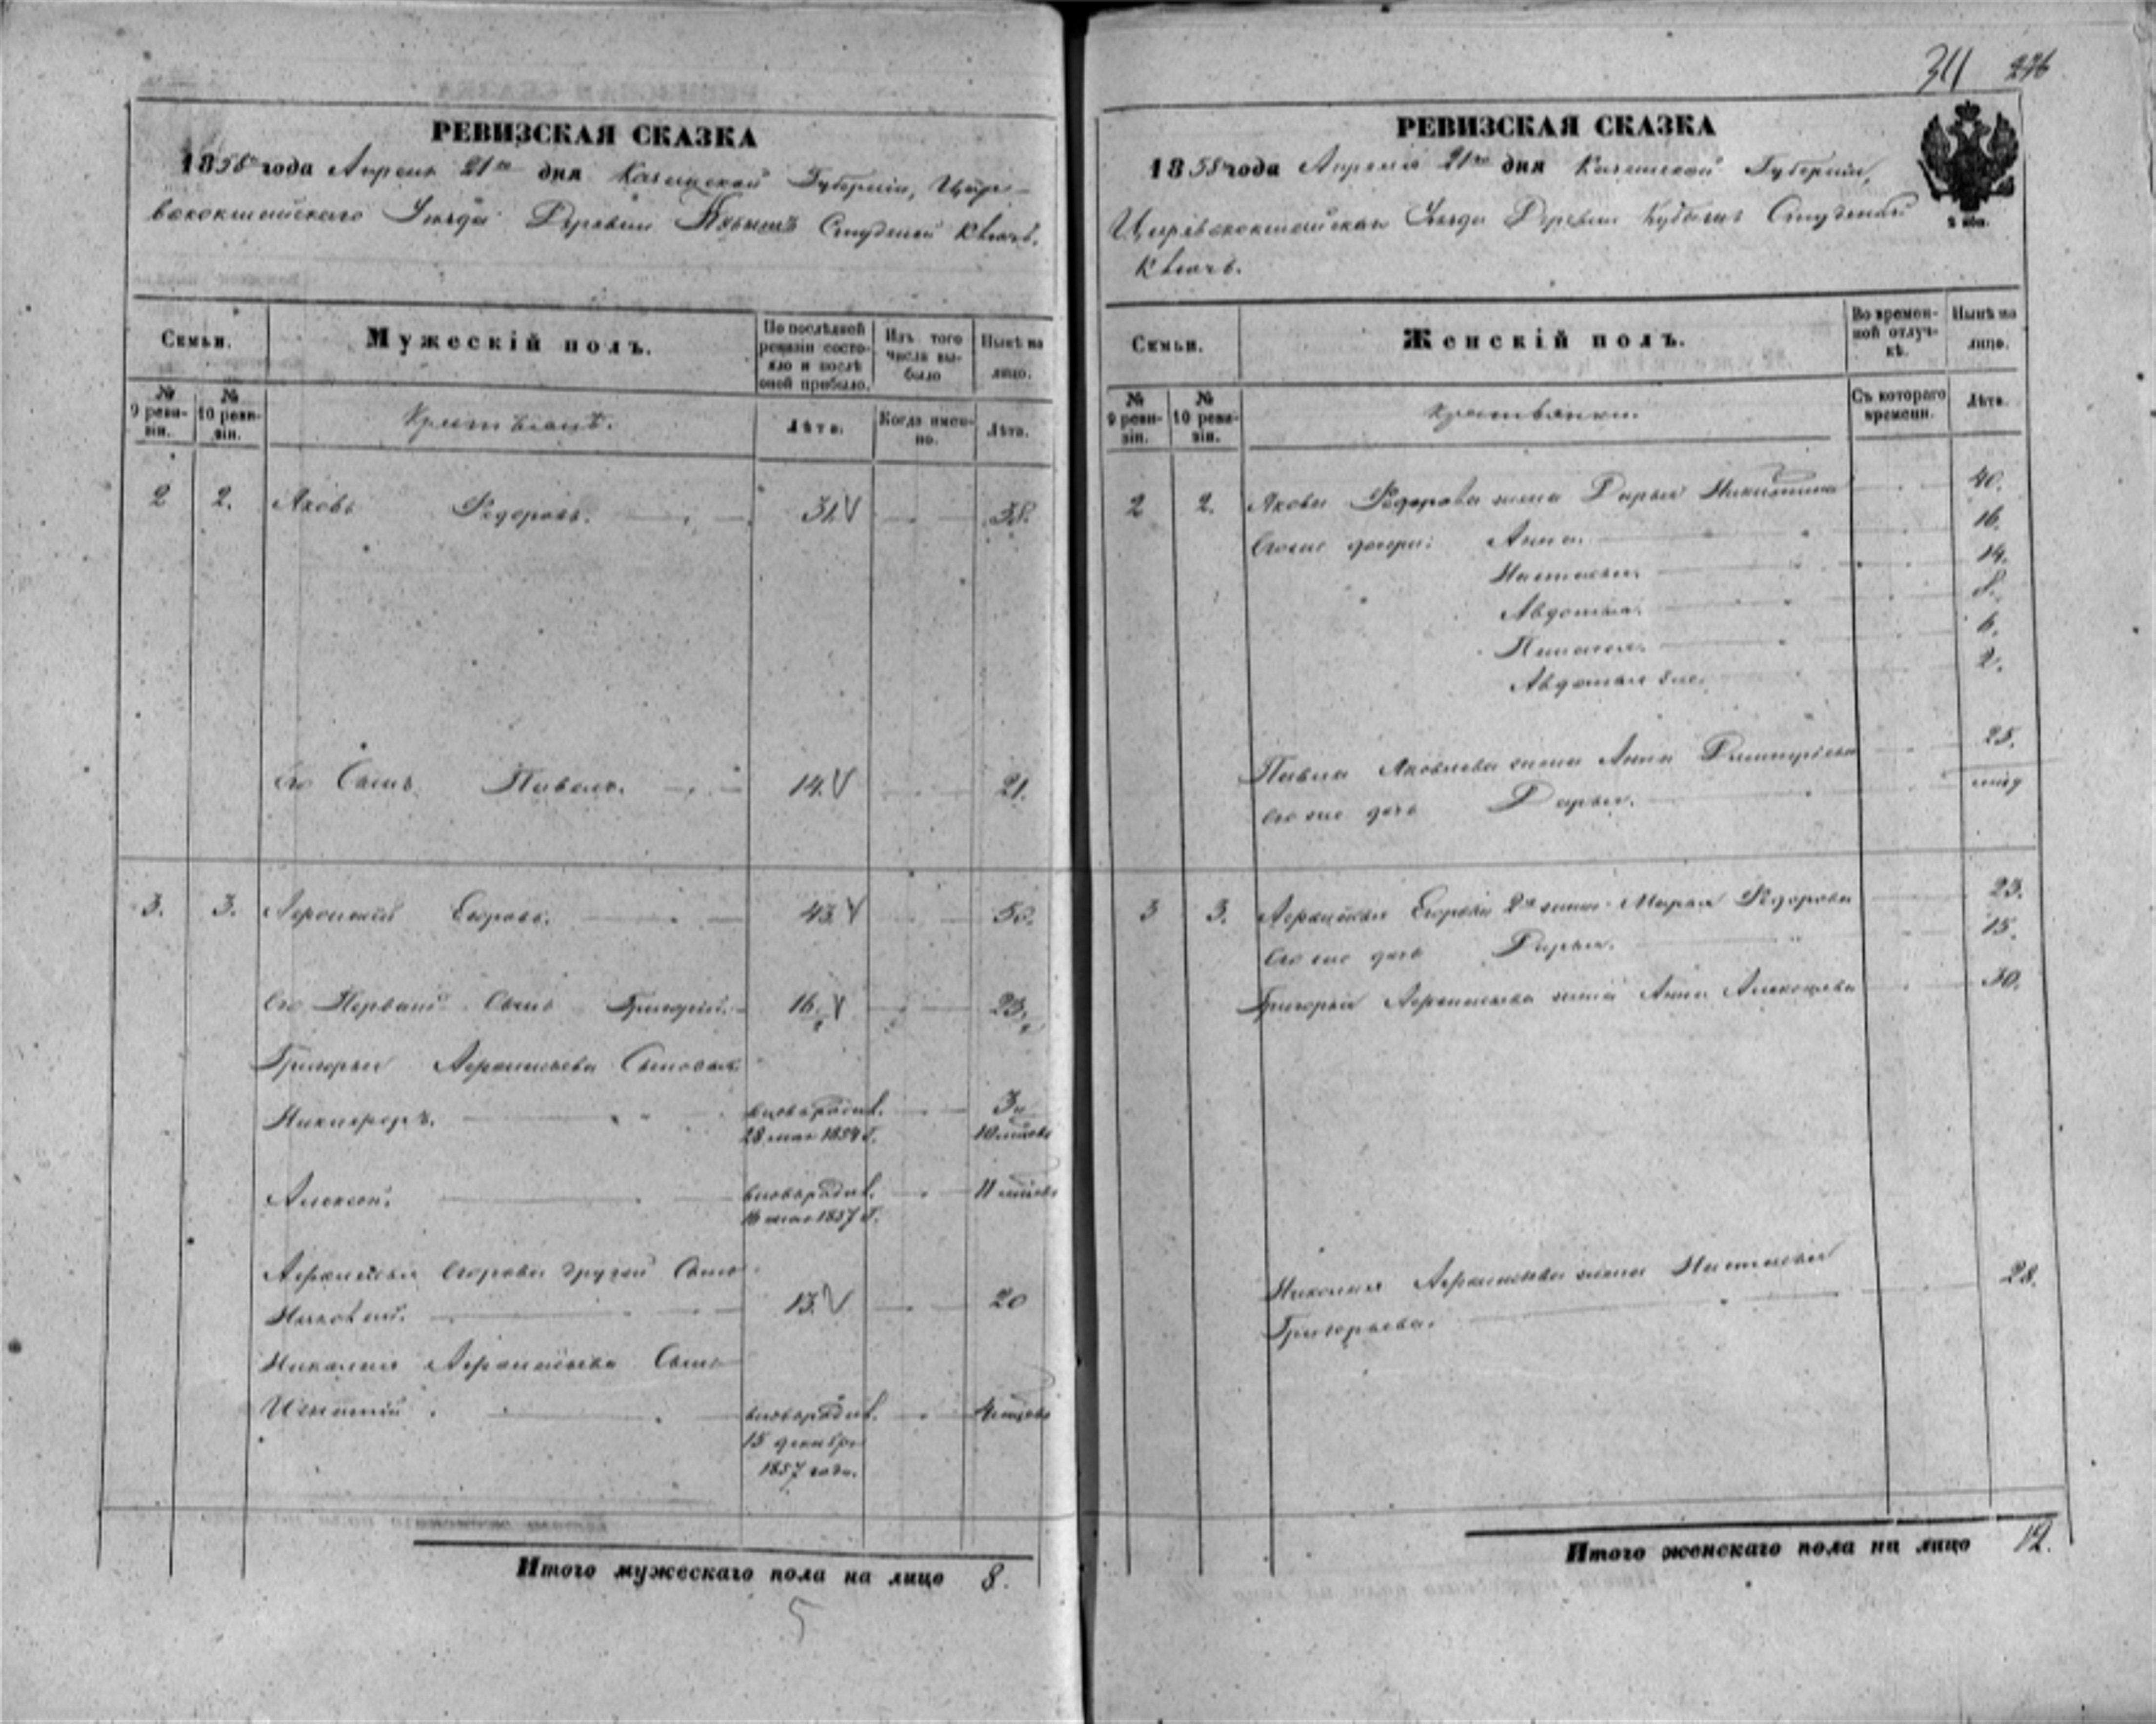 РЕВИЗСКАЯ СКАЗКА
1858 года Апреля 21го дня Казанской Губернiи, Царе-
вококшайскаго Уѣзда Деревни Студеной Ключь.
Семьи.
Мужескiй полъ.
По послѣдней ревизiи состояло и послѣ оной прибыло.
Изъ того числа выбыло
Нынѣ на лицо.
№ 9 ревизiи.
№ 10 ревизiи.
Крестьяне.
Лѣта.
Когда именно.
Лѣта.
2 2. Яковъ Федоровъ. 31. 38.
Его Сынъ Павелъ. 14. 21.
3. 3. Егоровъ. 43. 50.
Его Первый Сынъ Григорiй. 16. 23.
Григорья Сыновья:
Никифоръ. 3
28 мая 1854 г. 10 мѣсяцъ
Алексѣй. 11 мѣсяц
16 мая 1857 г.
Егорова другой Сынъ
Николай. 13. 20
Николая Сынъ
Игнатiй. 4 мѣсяца
15 декабря
1857 года.
Итого мужескаго пола на лицо 8.
5
34 276
РЕВИЗСКАЯ СКАЗКА
1858 года Апреля 21го дня Казанской Губернiи,
Царевококшайскаго Уѣзда Деревни Студеной
Ключь.
2 коп.
Семьи.
Женскiй полъ.
Во временной отлучкѣ.
Нынѣ на лицо.
№ 9 ревизiи.
№ 10 ревизiи.
Крестьянки.
Съ котораго времени.
Лѣта.
2 2. Якова Федорова жена Дарья Никитина 40.
Его же дочери: Анна. 16.
Настасья. 14.
Авдотья. 8.
6.
Авдотья же. 2.
Павла Яковлева жена Анна Дмитрiева 25.
Его же дочь Дарья.
3 3. Егорова 2я жена Марья Федорова 23.
Его же дочь Дарья. 15.
Григорья жена Анна Алексѣева 30.
Николая жена Настасья 28.
Григорьева.
Итого женскаго пола на лицо 12.